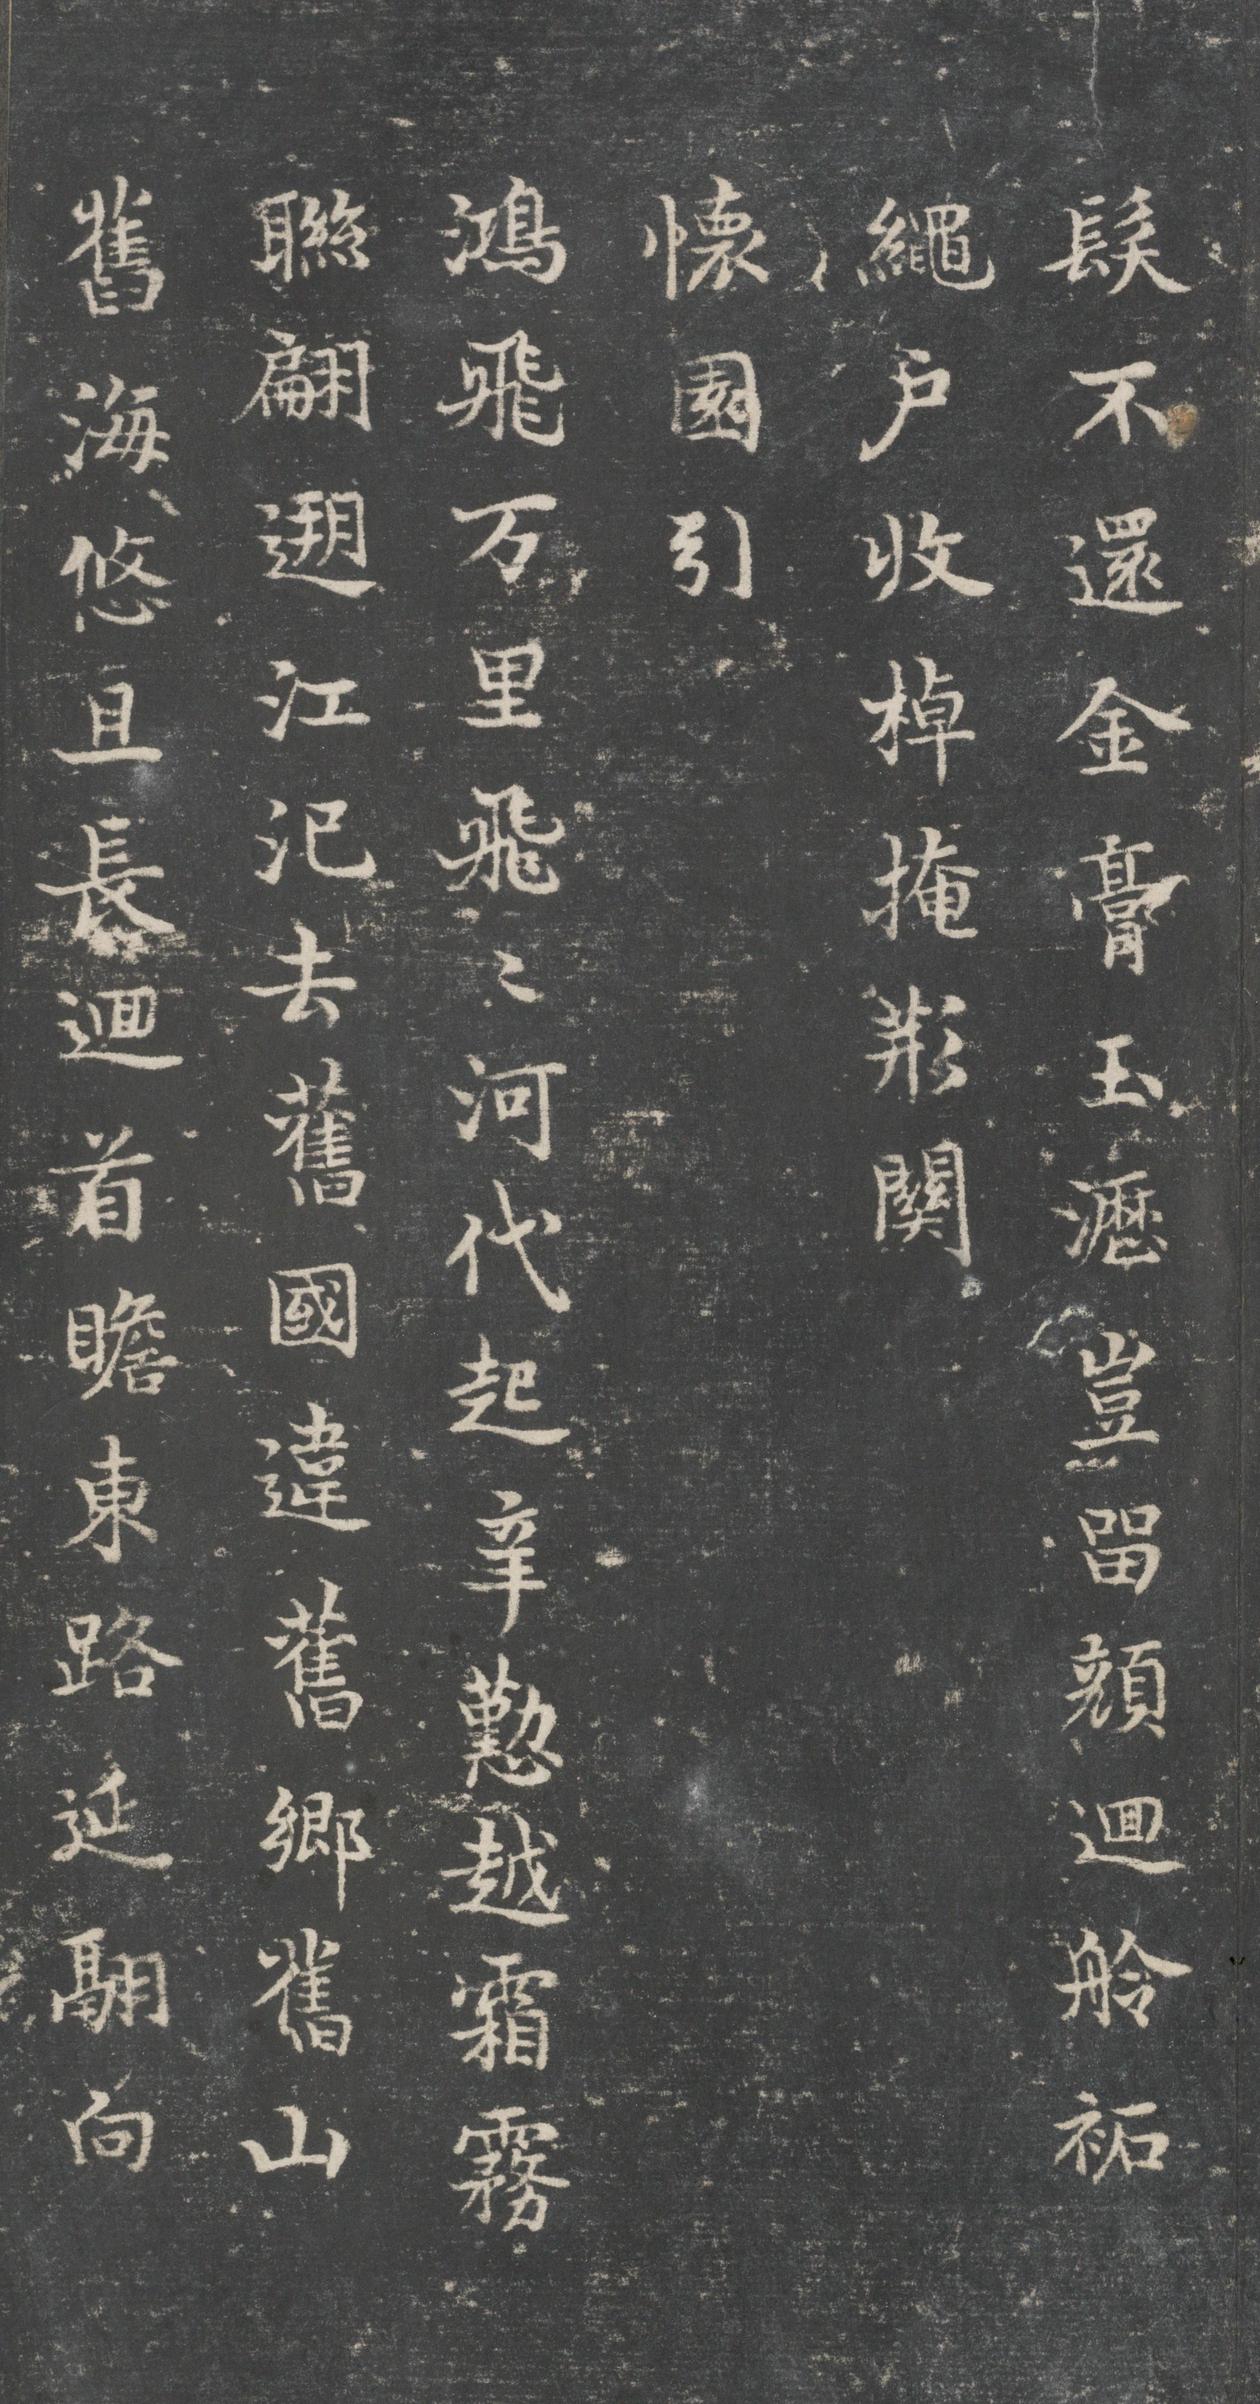 髮不還金膏玉瀝豈留顔迴舲祏
繩戶收棹掩荆關
懷園引
鴻飛万里飛〻河代起辛懃越霜霧
聮翩遡江汜去舊國違舊鄉舊山
舊海悠且長迴首瞻東路延翮向